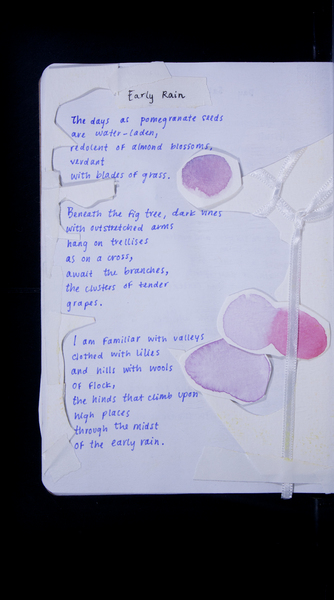 Early Rain
The days as pomegranate seeds
are water-laden,
redolent of almond blossoms,
verdant
with blades of grass.
Beneath the fig tree, dark vines
with outstretched arms
hang on trellises
as on a cross,
await the branches,
the clusters of tender
grapes.
I am familiar with valleys
clothed with lilies
and hills with wools
of flock,
the hinds that climb upon
high places
through the midst
of the early rain.